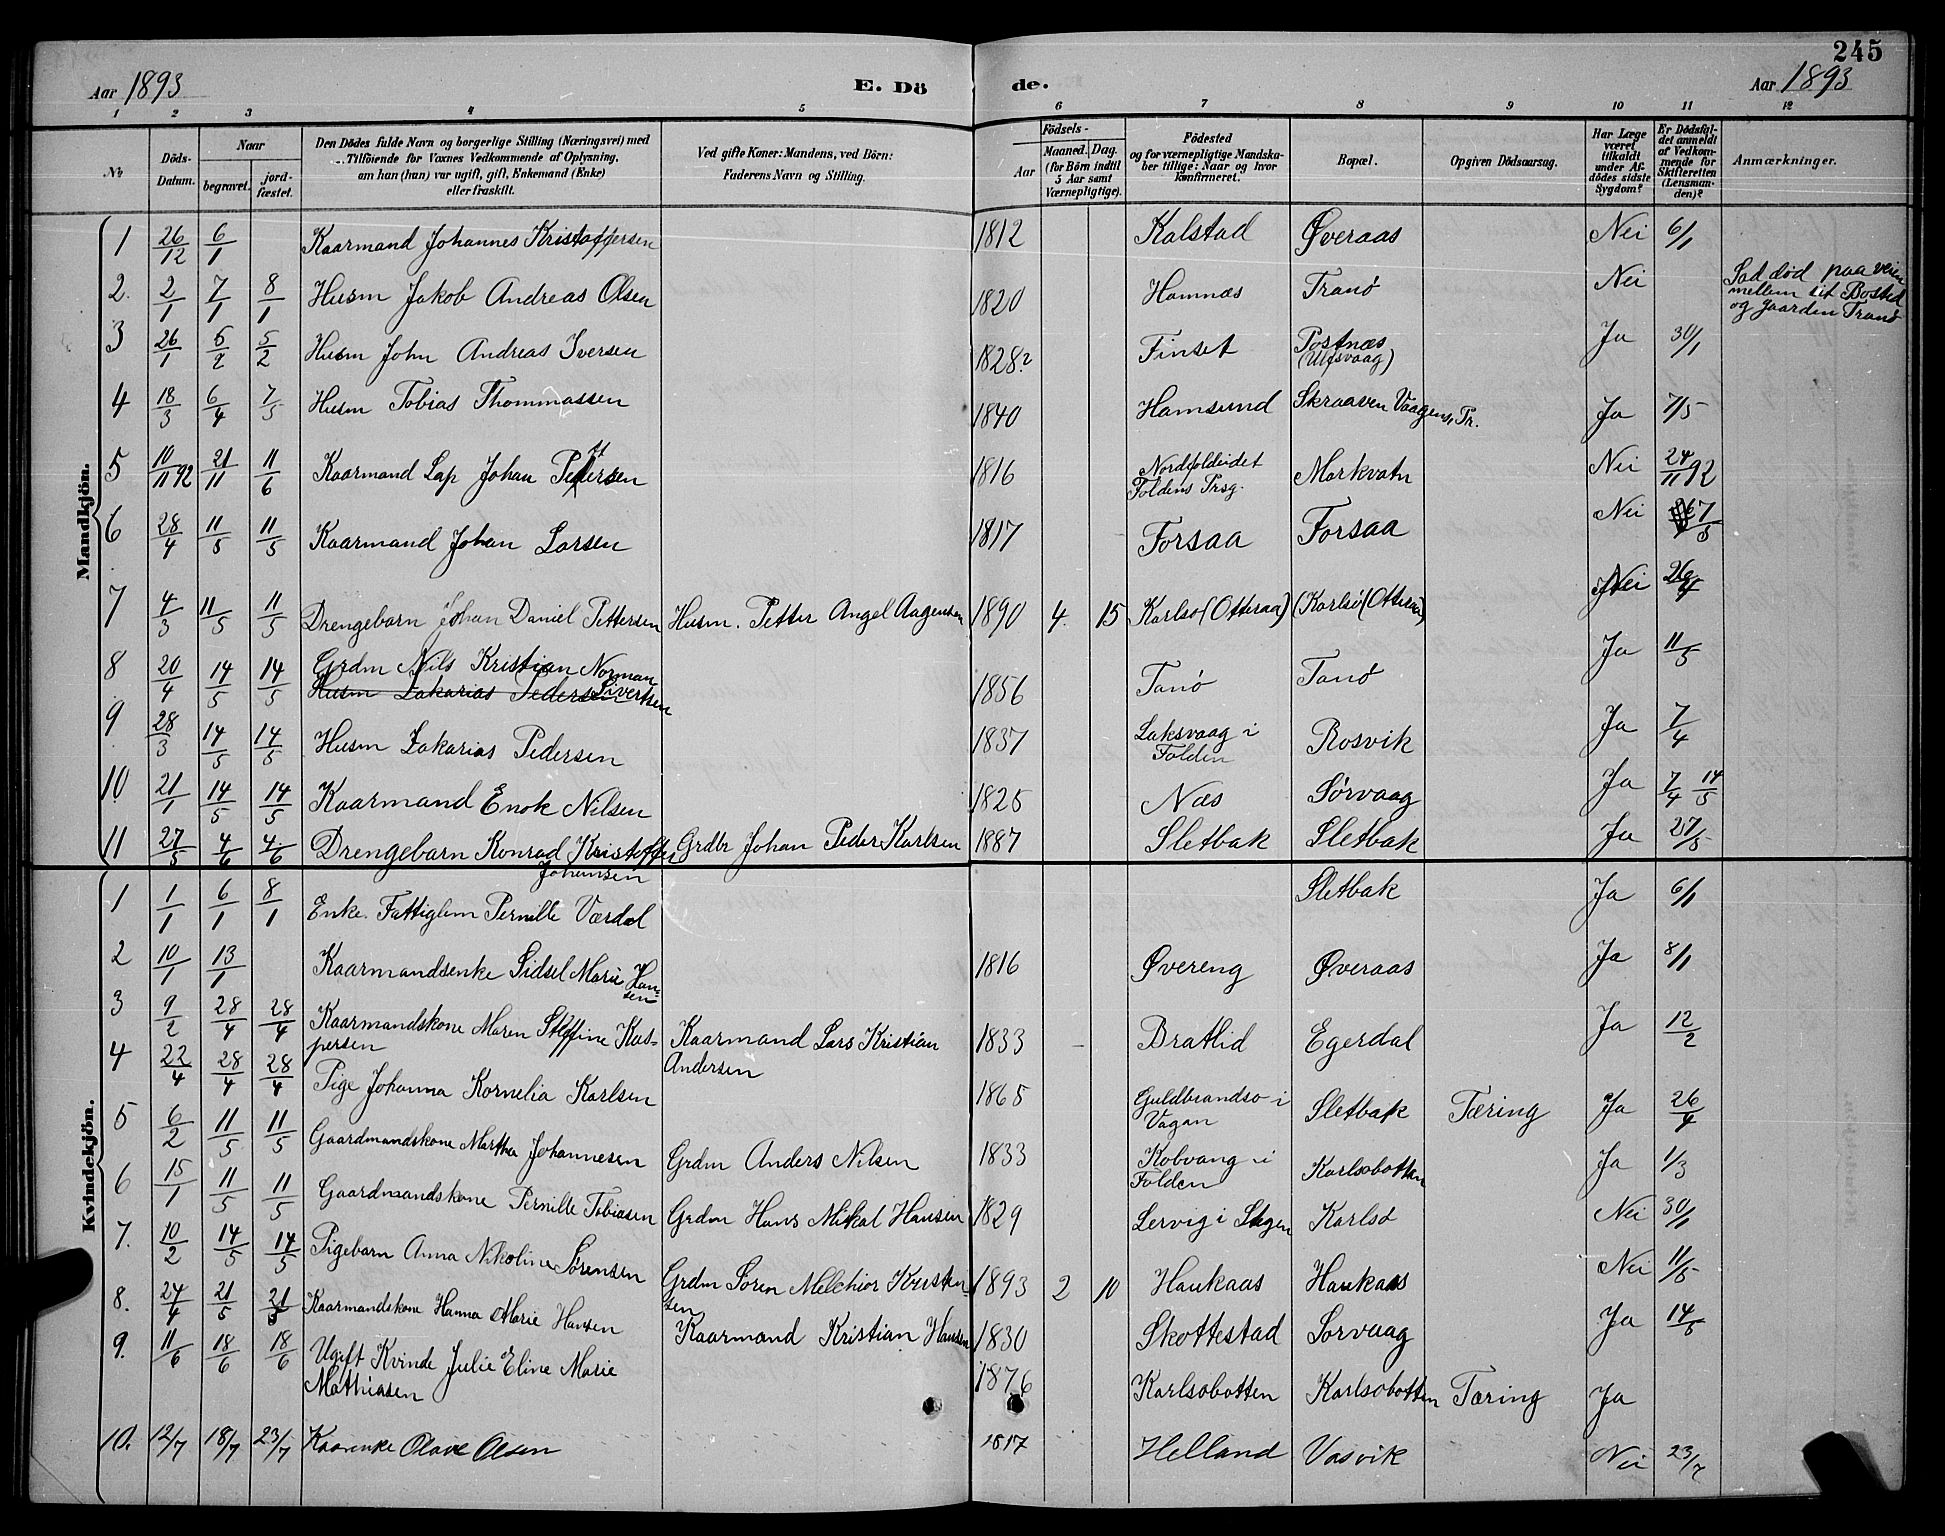 245
Aar 1893 E. Dö de. Aar 1893
1 2 3 4 5 6 7 8 9 10 11 12
№ Döds-Datum. Naar begravet. jord-fæstet. Den Dödes fulde Navn og borgerlige Stilling (Næringsvei) med Tilföiende for Voxnes Vedkommende af Oplysning, om han (hun) var ugift, gift, Enkemand (Enke) eller fraskilt. Ved gifte Koner: Mandens, ved Börn: Faderens Navn og Stilling. Födsels- Aar Maaned. Dag. (for Börn indtil 5 Aar samt Værnepligtige). Födested og for værnepligtige Mandska-ber tillige: Naar og hvor konfirmeret. Bopæl. Opgiven Dödsaarsag. Har Læge været tilkaldt under Af-dödes sidste Sygdom? Er Dödsfal-det anmeldt af Vedkom-mende for Skifteretten (Lensman-den)? Anmærkninger.
Mandkjön.
1 26/12 6/1 Kaarmand Johannes Kristoffersen 1812 Kalstad Øveraas Nei 6/1
2. 2/1 7/1 8/1 Husm Jakob Andreas Olsen 1820 Hamnæs Tranø Nei Sad död paa veien mellem sit Bosted og Gaarden Tranø
3 26/1 5/2 5/2 Husm John Andreas Iversen 1828? Finset Postnæs (Ulfsvaag) Ja 30/1
4 18/3 6/4 7/5 Husm Tobias Thommassen 1840 Hamsund Skraaven Vaagens Pr. Ja 7/5
5 10/11 92 21/11 11/6 Kaarmand Lap Johan Pedersen 1816 Nordfoldeidet Foldens Prsg. Markvatn Nei 24/11 92
6 28/4 11/5 11/5 Kaarmand Johan Larsen 1817 Forsaa Forsaa Nei 7/5
7 4/3 11/5 11/5 Drengebarn Johan Daniel Pettersen Husm. Petter Angel Aagensen 1890 4. 15 Karlsø (Otteraa) Karlsø (Otteraa) Nei 26/4
8 20/4 14/5 14/5 Grdm Nils Kristian Norman Sivertsen 1856 Tanø Tanø Ja 11/5
Husm Zakarias Pedersen
9 28/3 14/5 14/5 Husm Zakarias Pedersen 1837 Laksvaag i Folden Rosvik Ja 7/4
10 21/1 14/5 14/5 Kaarmand Enok Nilsen 1825 Næs Sørvaag Ja 7/4 14/5
11 27/5 4/6 4/6 Drengebarn Konrad Kristoffer Johansen Grdbr Johan Peder Karlsen 1887 Sletbak Sletbak Ja 27/5
Kvindekjön.
1 1/1 6/1 8/1 Enke. Fattiglem Pernille Værdal Sletbak Ja 6/1
2 10/1 13/1 Kaarmandsenke Sidsel Marie Han-sen 1816 Øvereng Øveraas Ja 8/1
3 9/2 28/4 28/4 Kaarmandskone Maren Steffine Kas-persen Kaarmand Lars Kristian Andersen 1833 - Bratlid Egerdal Ja 12/2
4 22/4 28/4 28/4 Pige Johanna Kornelia Karlsen 1865 Guldbrandsø i Vagan Sletbak Tæring Ja 26/4
5 6/2 11/5 11/5 Gaardmandskone Martha Johannesen Grdm Anders Nilsen 1833 Kobvaag i Folden Karlsobotten Ja 1/3
6 15/1 11/5 11/5 Gaardmandskone Pernille Tobiasen Grdm Hans Mikal Hansen 1829 Lervig i Stegen Karlsø Nei 30/1
7. 10/2 14/5 14/5 Pigebarn Anna Nikoline Sørensen Grdm Søren Melchior Kristen-sen 1893 2 10 Haukaas Haukaas Nei 11/5
8. 24/4 21/5 21/5 Kaarmandskone Hanna Marie Hansen Kaarmand Kristian Hansen 1830 Skottestad Sørvaag Ja 14/5
9. 11/6 18/6 18/6 Ugift Kvinde Julie Eline Marie Mathiasen 1876 Karlsobotten Karlsobotten Tæring Ja
10. 12/7 18/7 23/7 Kaarenke Olave Olsen 1817 Helland Vasvik Nei 23/7